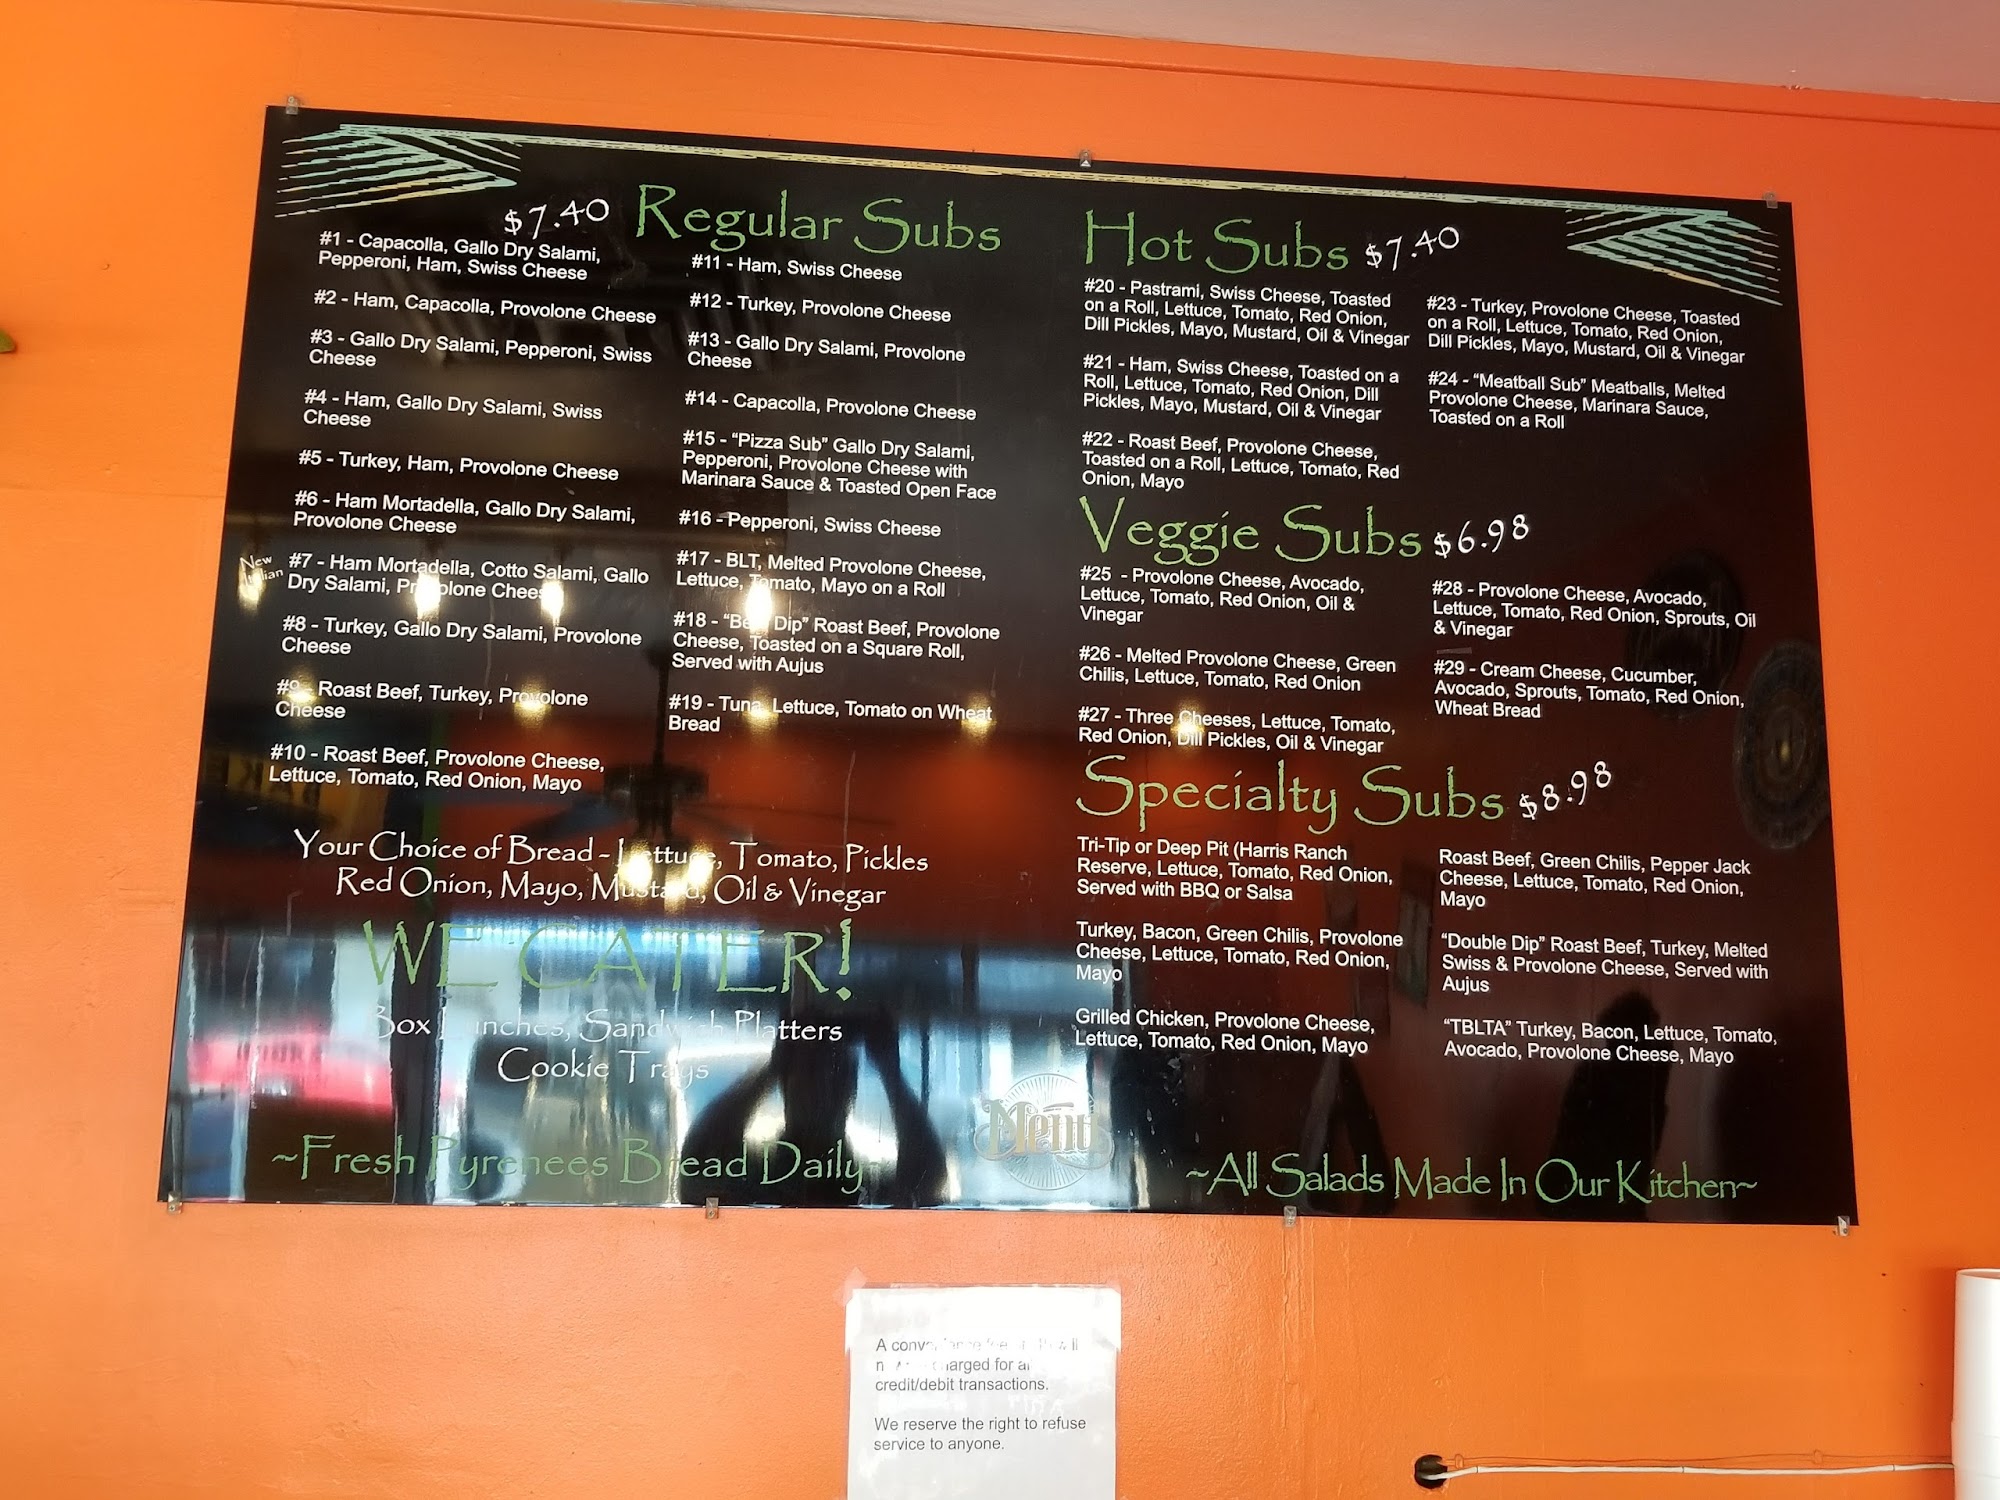 $7.40 Regular Subs
#1 - Capacolla, Gallo Dry Salami,
Pepperoni, Ham, Swiss Cheese
#2 - Ham, Capacolla, Provolone Cheese
#3 - Gallo Dry Salami, Pepperoni, Swiss
Cheese
#4 - Ham, Gallo Dry Salami, Swiss
Cheese
#5 - Turkey, Ham, Provolone Cheese
#6 - Ham Mortadella, Gallo Dry Salami,
Provolone Cheese
New
Italian
#7 - Ham Mortadella, Cotto Salami, Gallo
Dry Salami, Provolone Cheese
#8 - Turkey, Gallo Dry Salami, Provolone
Cheese
#9 - Roast Beef, Turkey, Provolone
Cheese
#10 - Roast Beef, Provolone Cheese,
Lettuce, Tomato, Red Onion, Mayo
#11 - Ham, Swiss Cheese
#12 - Turkey, Provolone Cheese
#13 - Gallo Dry Salami, Provolone
Cheese
#14 - Capacolla, Provolone Cheese
#15 - “Pizza Sub” Gallo Dry Salami,
Pepperoni, Provolone Cheese with
Marinara Sauce & Toasted Open Face
#16 - Pepperoni, Swiss Cheese
#17 - BLT, Melted Provolone Cheese,
Lettuce, Tomato, Mayo on a Roll
#18 - “Beef Dip” Roast Beef, Provolone
Cheese, Toasted on a Square Roll,
Served with Aujus
#19 - Tuna, Lettuce, Tomato on Wheat
Bread
Your Choice of Bread - Lettuce, Tomato, Pickles
Red Onion, Mayo, Mustard, Oil & Vinegar
WE CATER!
Box Lunches, Sandwich Platters
Cookie Trays
~Fresh Pyrenees Bread Daily~
Hot Subs $7.40
#20 - Pastrami, Swiss Cheese, Toasted
on a Roll, Lettuce, Tomato, Red Onion,
Dill Pickles, Mayo, Mustard, Oil & Vinegar
#21 - Ham, Swiss Cheese, Toasted on a
Roll, Lettuce, Tomato, Red Onion, Dill
Pickles, Mayo, Mustard, Oil & Vinegar
#22 - Roast Beef, Provolone Cheese,
Toasted on a Roll, Lettuce, Tomato, Red
Onion, Mayo
#23 - Turkey, Provolone Cheese, Toasted
on a Roll, Lettuce, Tomato, Red Onion,
Dill Pickles, Mayo, Mustard, Oil & Vinegar
#24 - “Meatball Sub” Meatballs, Melted
Provolone Cheese, Marinara Sauce,
Toasted on a Roll
Veggie Subs $6.98
#25 - Provolone Cheese, Avocado,
Lettuce, Tomato, Red Onion, Oil &
Vinegar
#26 - Melted Provolone Cheese, Green
Chilis, Lettuce, Tomato, Red Onion
#27 - Three Cheeses, Lettuce, Tomato,
Red Onion, Dill Pickles, Oil & Vinegar
#28 - Provolone Cheese, Avocado,
Lettuce, Tomato, Red Onion, Sprouts, Oil
& Vinegar
#29 - Cream Cheese, Cucumber,
Avocado, Sprouts, Tomato, Red Onion,
Wheat Bread
Specialty Subs $8.98
Tri-Tip or Deep Pit (Harris Ranch
Reserve, Lettuce, Tomato, Red Onion,
Served with BBQ or Salsa
Turkey, Bacon, Green Chilis, Provolone
Cheese, Lettuce, Tomato, Red Onion,
Mayo
Grilled Chicken, Provolone Cheese,
Lettuce, Tomato, Red Onion, Mayo
Roast Beef, Green Chilis, Pepper Jack
Cheese, Lettuce, Tomato, Red Onion,
Mayo
“Double Dip” Roast Beef, Turkey, Melted
Swiss & Provolone Cheese, Served with
Aujus
“TBLTA” Turkey, Bacon, Lettuce, Tomato,
Avocado, Provolone Cheese, Mayo
Menu
~All Salads Made In Our Kitchen~
A convenience
charged for
credit/debit transactions.
We reserve the right to refuse
service to anyone.